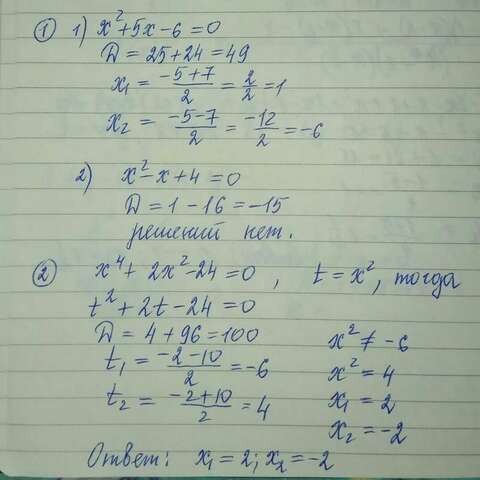 ① 1) x²+5x-6=0
D = 25+24=49
x₁ = (-5+7)/2 = 2/2 = 1
x₂ = (-5-7)/2 = -12/2 = -6
2) x²-x+4=0
D = 1-16=-15
решений нет.
② x⁴+2x²-24=0, t=x², тогда
t²+2t-24=0
D = 4+96=100
t₁ = (-2-10)/2 = -6
t₂ = (-2+10)/2 = 4
x² ≠ -6
x² = 4
x₁ = 2
x₂ = -2
Ответ: x₁=2; x₂=-2